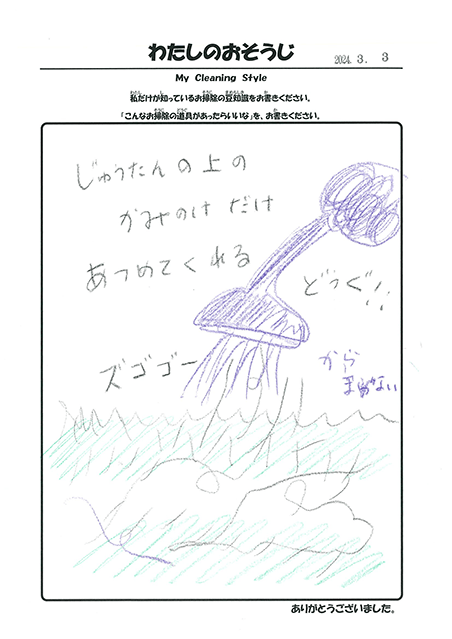 わたしのおそうじ
2024. 3. 3
My Cleaning Style
私だけが知っているお掃除の豆知識をお書きください。
「こんなお掃除の道具があったらいいな」を、お書きください。
じゅうたんの上の
かみのけだけ
あつめてくれる
どうぐ!!
ズゴゴー
から
まらない
ありがとうございました。